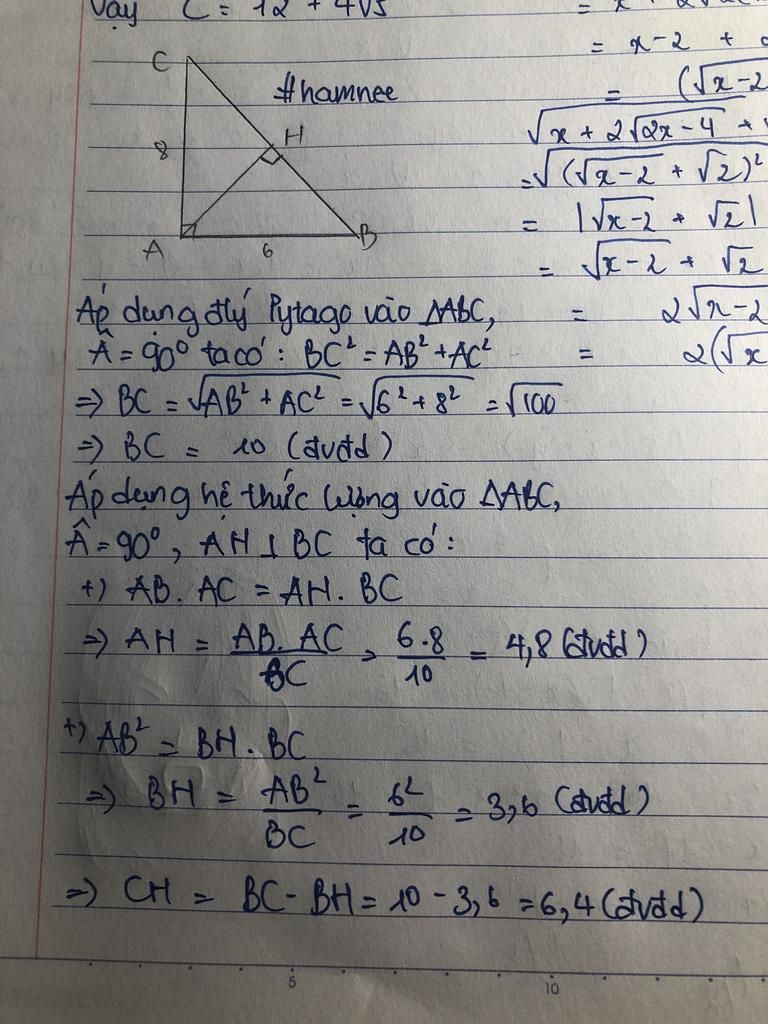 Vậy C = 12 + 4√5
= x
C
#hamnee
H
8
A
6
B
= x-2 +
= (√x-2
√x + 2√2x-4 +
=√(√x-2 + √2)²
= |√x-2 + √2|
= √x-2 + √2
= 2√x-2
= 2(√x
Áp dụng đlý Pytago vào ΔABC,
Â = 90° ta có: BC² = AB² + AC²
=> BC = √AB² + AC² = √6² + 8² = √100
=> BC = 10 (đvđd)
Áp dụng hệ thức lượng vào ΔABC,
Â = 90°, AH ⊥ BC ta có:
+) AB. AC = AH. BC
=> AH = AB. AC / BC = 6.8 / 10 = 4,8 (đvđd)
+) AB² = BH. BC
=> BH = AB² / BC = 6² / 10 = 3,6 (đvđd)
=> CH = BC - BH = 10 - 3,6 = 6,4 (đvđd)
5
10